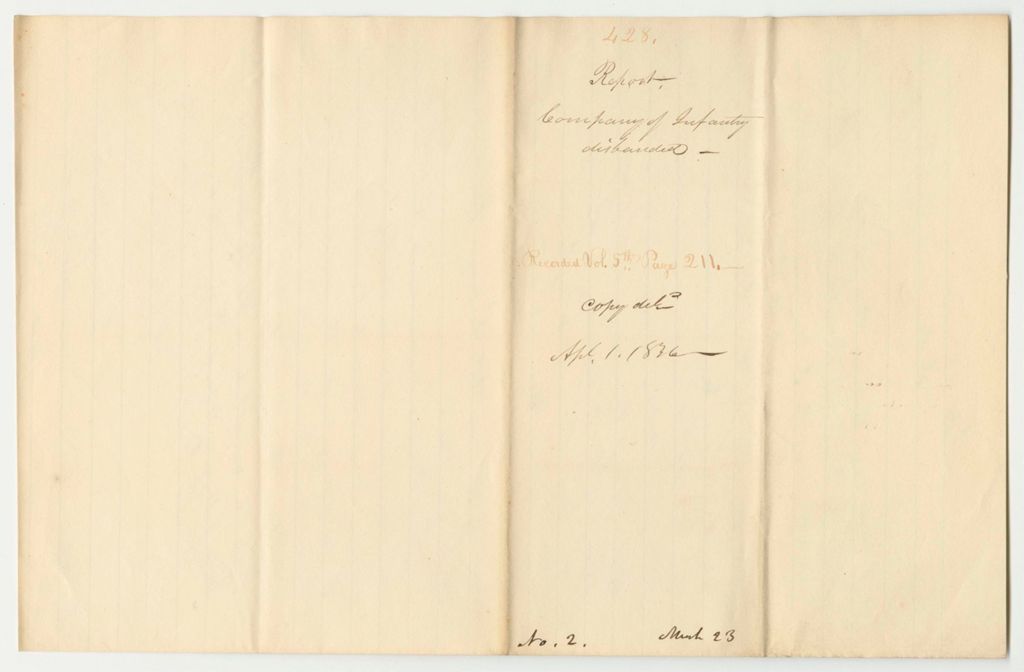 428.
Report.
Company of Infantry
disbanded —
Recorded Vol. 5th, Page 211. —
copy deld
Apl. 1. 1836 —
No. 2. March 23